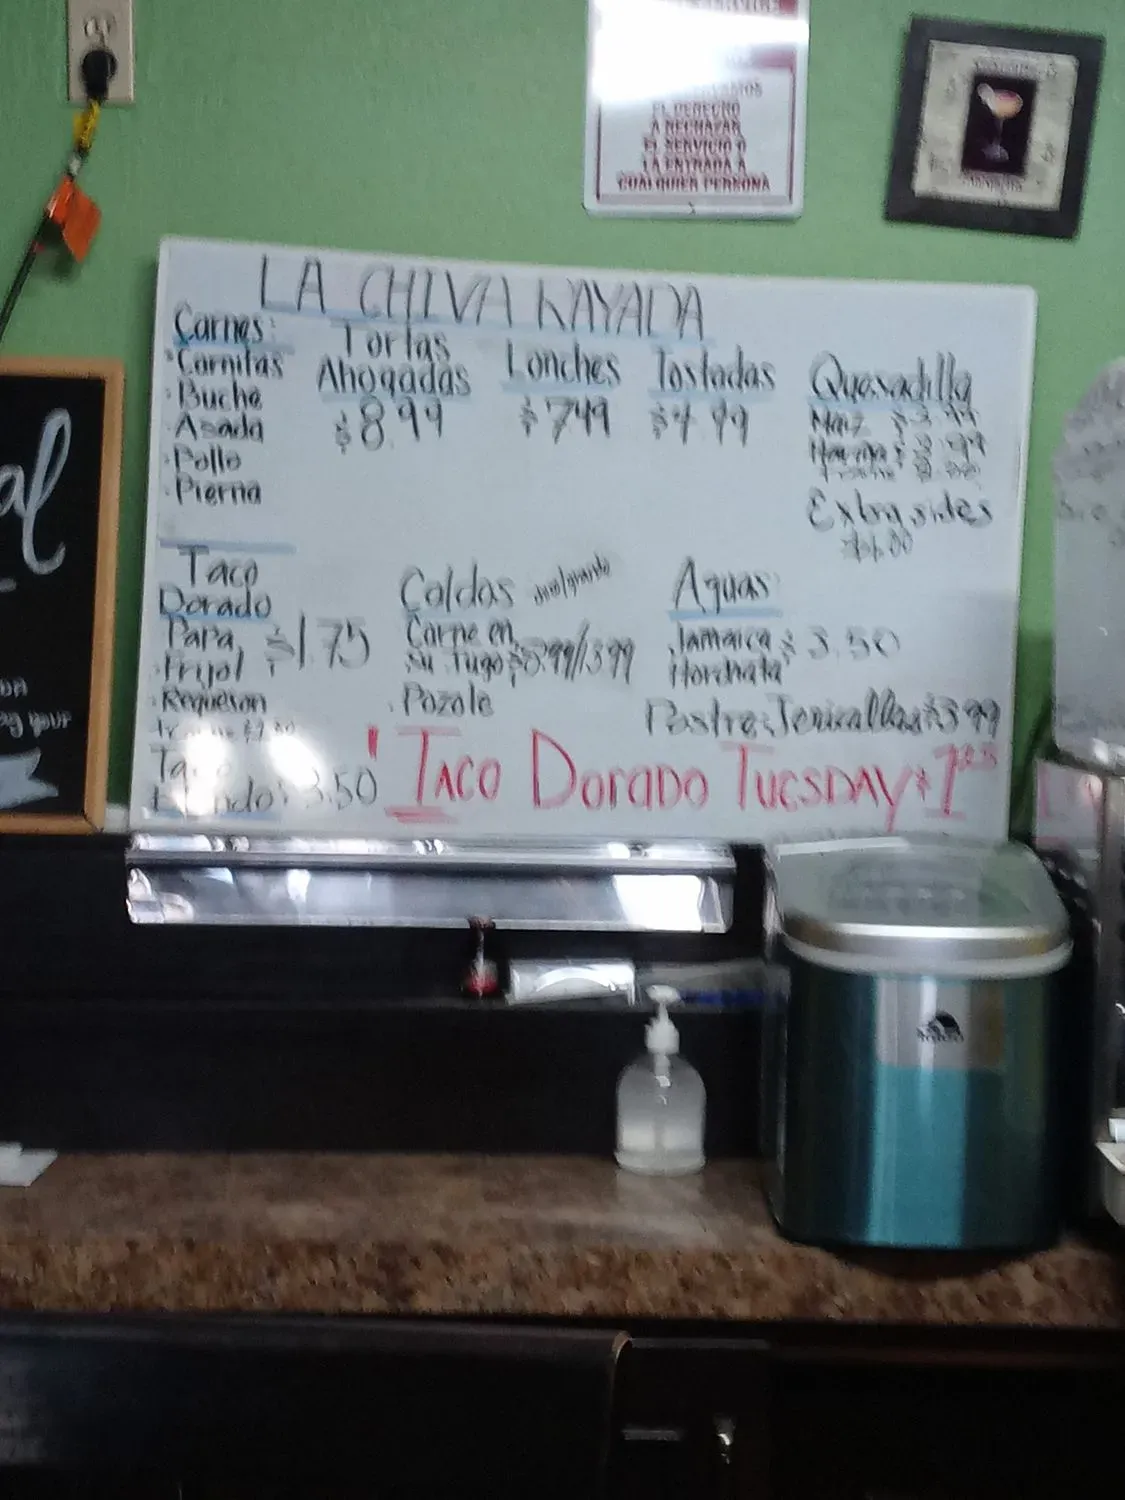 EL DERECHO
A RECHAZAR
EL SERVICIO O
LA ENTRADA A
CUALQUIER PERSONA
LA CHIVA RAYADA
Carnes:
· Carnitas
· Buche
· Asada
· Pollo
· Pierna
Tortas
Ahogadas
$8.99
Lonches
$7.49
Tostadas
$4.99
Quesadilla
Maiz $3.99
Harina $3.99
Extra sides
$1.00
Taco
Dorado
Papa, $1.75
· Frijol
· Requeson
Taco
3.50
Caldos
Carne en
su Jugo $8.99/13.99
· Pozole
Aguas:
Jamaica $3.50
Horchata
Postre: Jericallas $3.99
! TACO DORADO TUESDAY $1.25
al
ag your